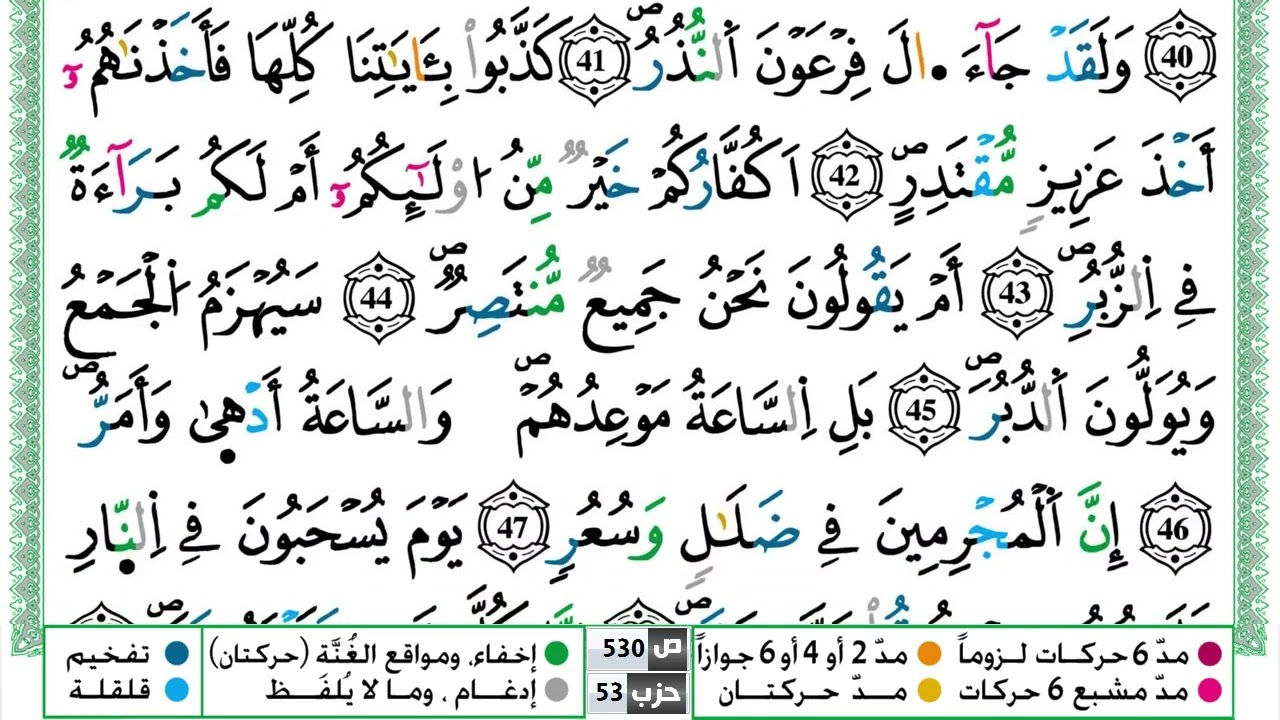 40 وَلَقَدْ جَآءَ الَ فِرْعَوْنَ اَ۬لنُّذُرُ ص 41 كَذَّبُواْ بِـَٔايَٰتِنَا كُلِّهَا فَأَخَذْنَٰهُمُۥٓ
أَخْذَ عَزِيزٖ مُّقْتَدِرٍ ص 42 اَكُفَّارُكُمْ خَيْرٞ مِّنُ ا۟وْلَٰٓئِكُمُۥٓ أَمْ لَكُم بَرَآءَةٞ
فِے اِ۬لزُّبُرِ ص 43 أَمْ يَقُولُونَ نَحْنُ جَمِيعٞ مُّنتَصِرٞ ص 44 سَيُهْزَمُ اُ۬لْجَمْعُ
وَيُوَلُّونَ اَ۬لدُّبُرَ ص 45 بَلِ اِ۬لسَّاعَةُ مَوْعِدُهُمْ ص وَالسَّاعَةُ أَدْهۭيٰ وَأَمَرُّ ص
46 إِنَّ اَ۬لْمُجْرِمِينَ فِے ضَلَٰلٖ وَسُعُرٖ 47 يَوْمَ يُسْحَبُونَ فِے اِ۬لنّ۪ارِ
مدّ 6 حركات لـزوماً مدّ 2 أو 4 أو 6 جوازاً ص 530 إخفاء، ومواقع الغُنَّة (حركتان) تفخيم
مدّ مشبع 6 حركات مـدّ حركتـان حزب 53 إدغـام ، ومـا لا يُلفَـظ قلقلـة